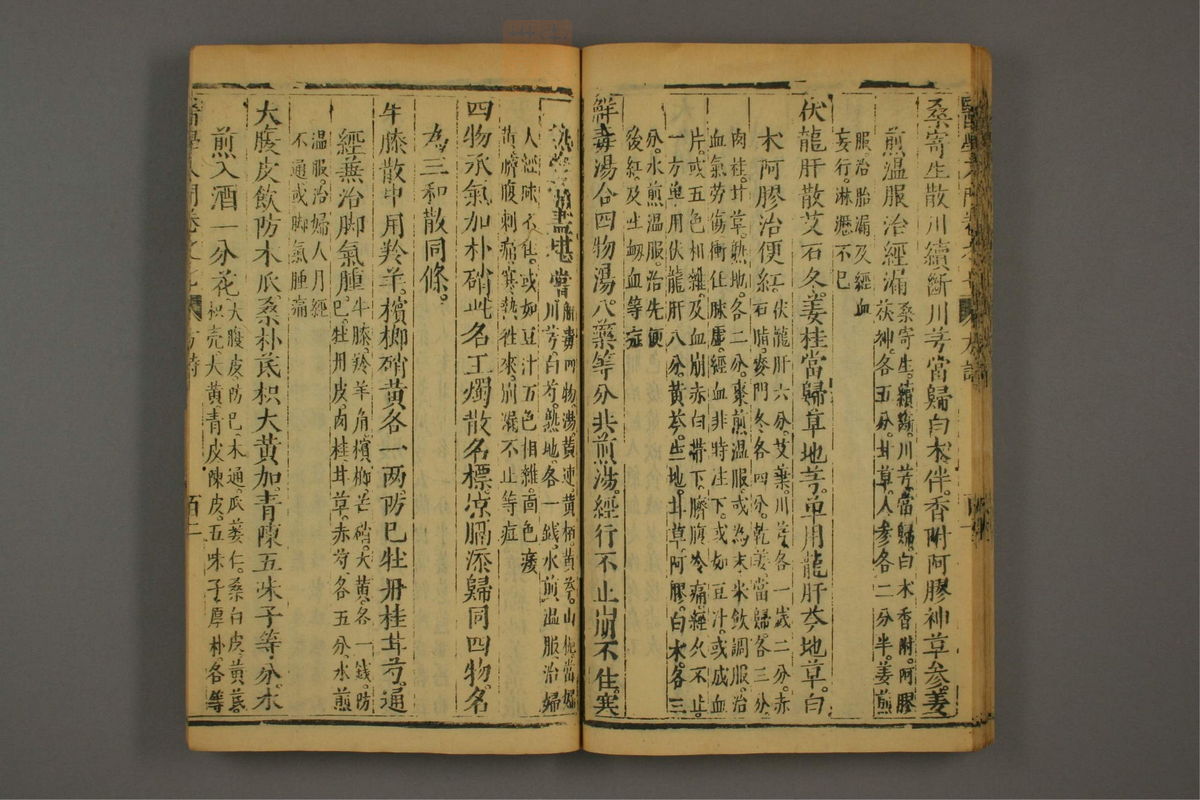 桑寄生散川續斷川芎當歸白朮伴香附阿膠神草參姜
煎溫服治經漏
桑寄生。續斷。川芎當歸。白朮香附。阿膠
茯神。各五分。甘草。人參各二分半。姜煎
服治胎漏及經血
妄行。淋瀝不已
伏龍肝散艾石冬。姜桂當歸草地芎。單用龍肝芩地草。白
朮阿膠治便紅。
伏龍肝六分。艾葉。川芎各一錢二分。赤
石脂。麥門冬各四分。乾姜當歸各三分
肉桂。甘草。熟地。各二分。棗煎溫服或為末米飲調服。治
血氣勞傷衝任脉虛。經血非時注下。或如豆汁。或成血
片。或五色相雜。及血崩赤白帶下。臍腹冷痛。經久不止。
一方單用伏龍肝八分。黃芩。生地。甘草阿膠。白朮。各三
分。水煎溫服。治先便
後紅。及生衂血等症
解毒湯合四物湯。八藥等分共煎湯。經行不止崩不住。寒
熱
盡堪嘗
川芎白芍熟地各一錢水煎溫服治婦
人經脉不住。或如豆汁五色相雜。面色痿
黃。臍腹刺痛。寒熱往來。崩漏不止等症
四物承氣加朴硝。此名玉燭散名標。涼膈添歸同四物。名
為三和散同條。
牛膝散中用羚羊。檳榔硝黃各一兩防巳牡丹桂甘芍。通
經兼治脚氣腫。
牛膝。羚羊角檳榔芒硝。大黃。各一錢。防
巳。牡丹皮。肉桂甘草。赤芍各五分。水煎
溫服。治婦人月經
不通或脚氣腫痛
大腹皮飲防木瓜桑朴芪枳大黃加。青陳五味子等分。水
煎入酒一分花
大腹皮防巳木通。瓜蔞仁。桑白皮。黃芪。
枳壳大黃青皮陳皮。五味子厚朴。各等